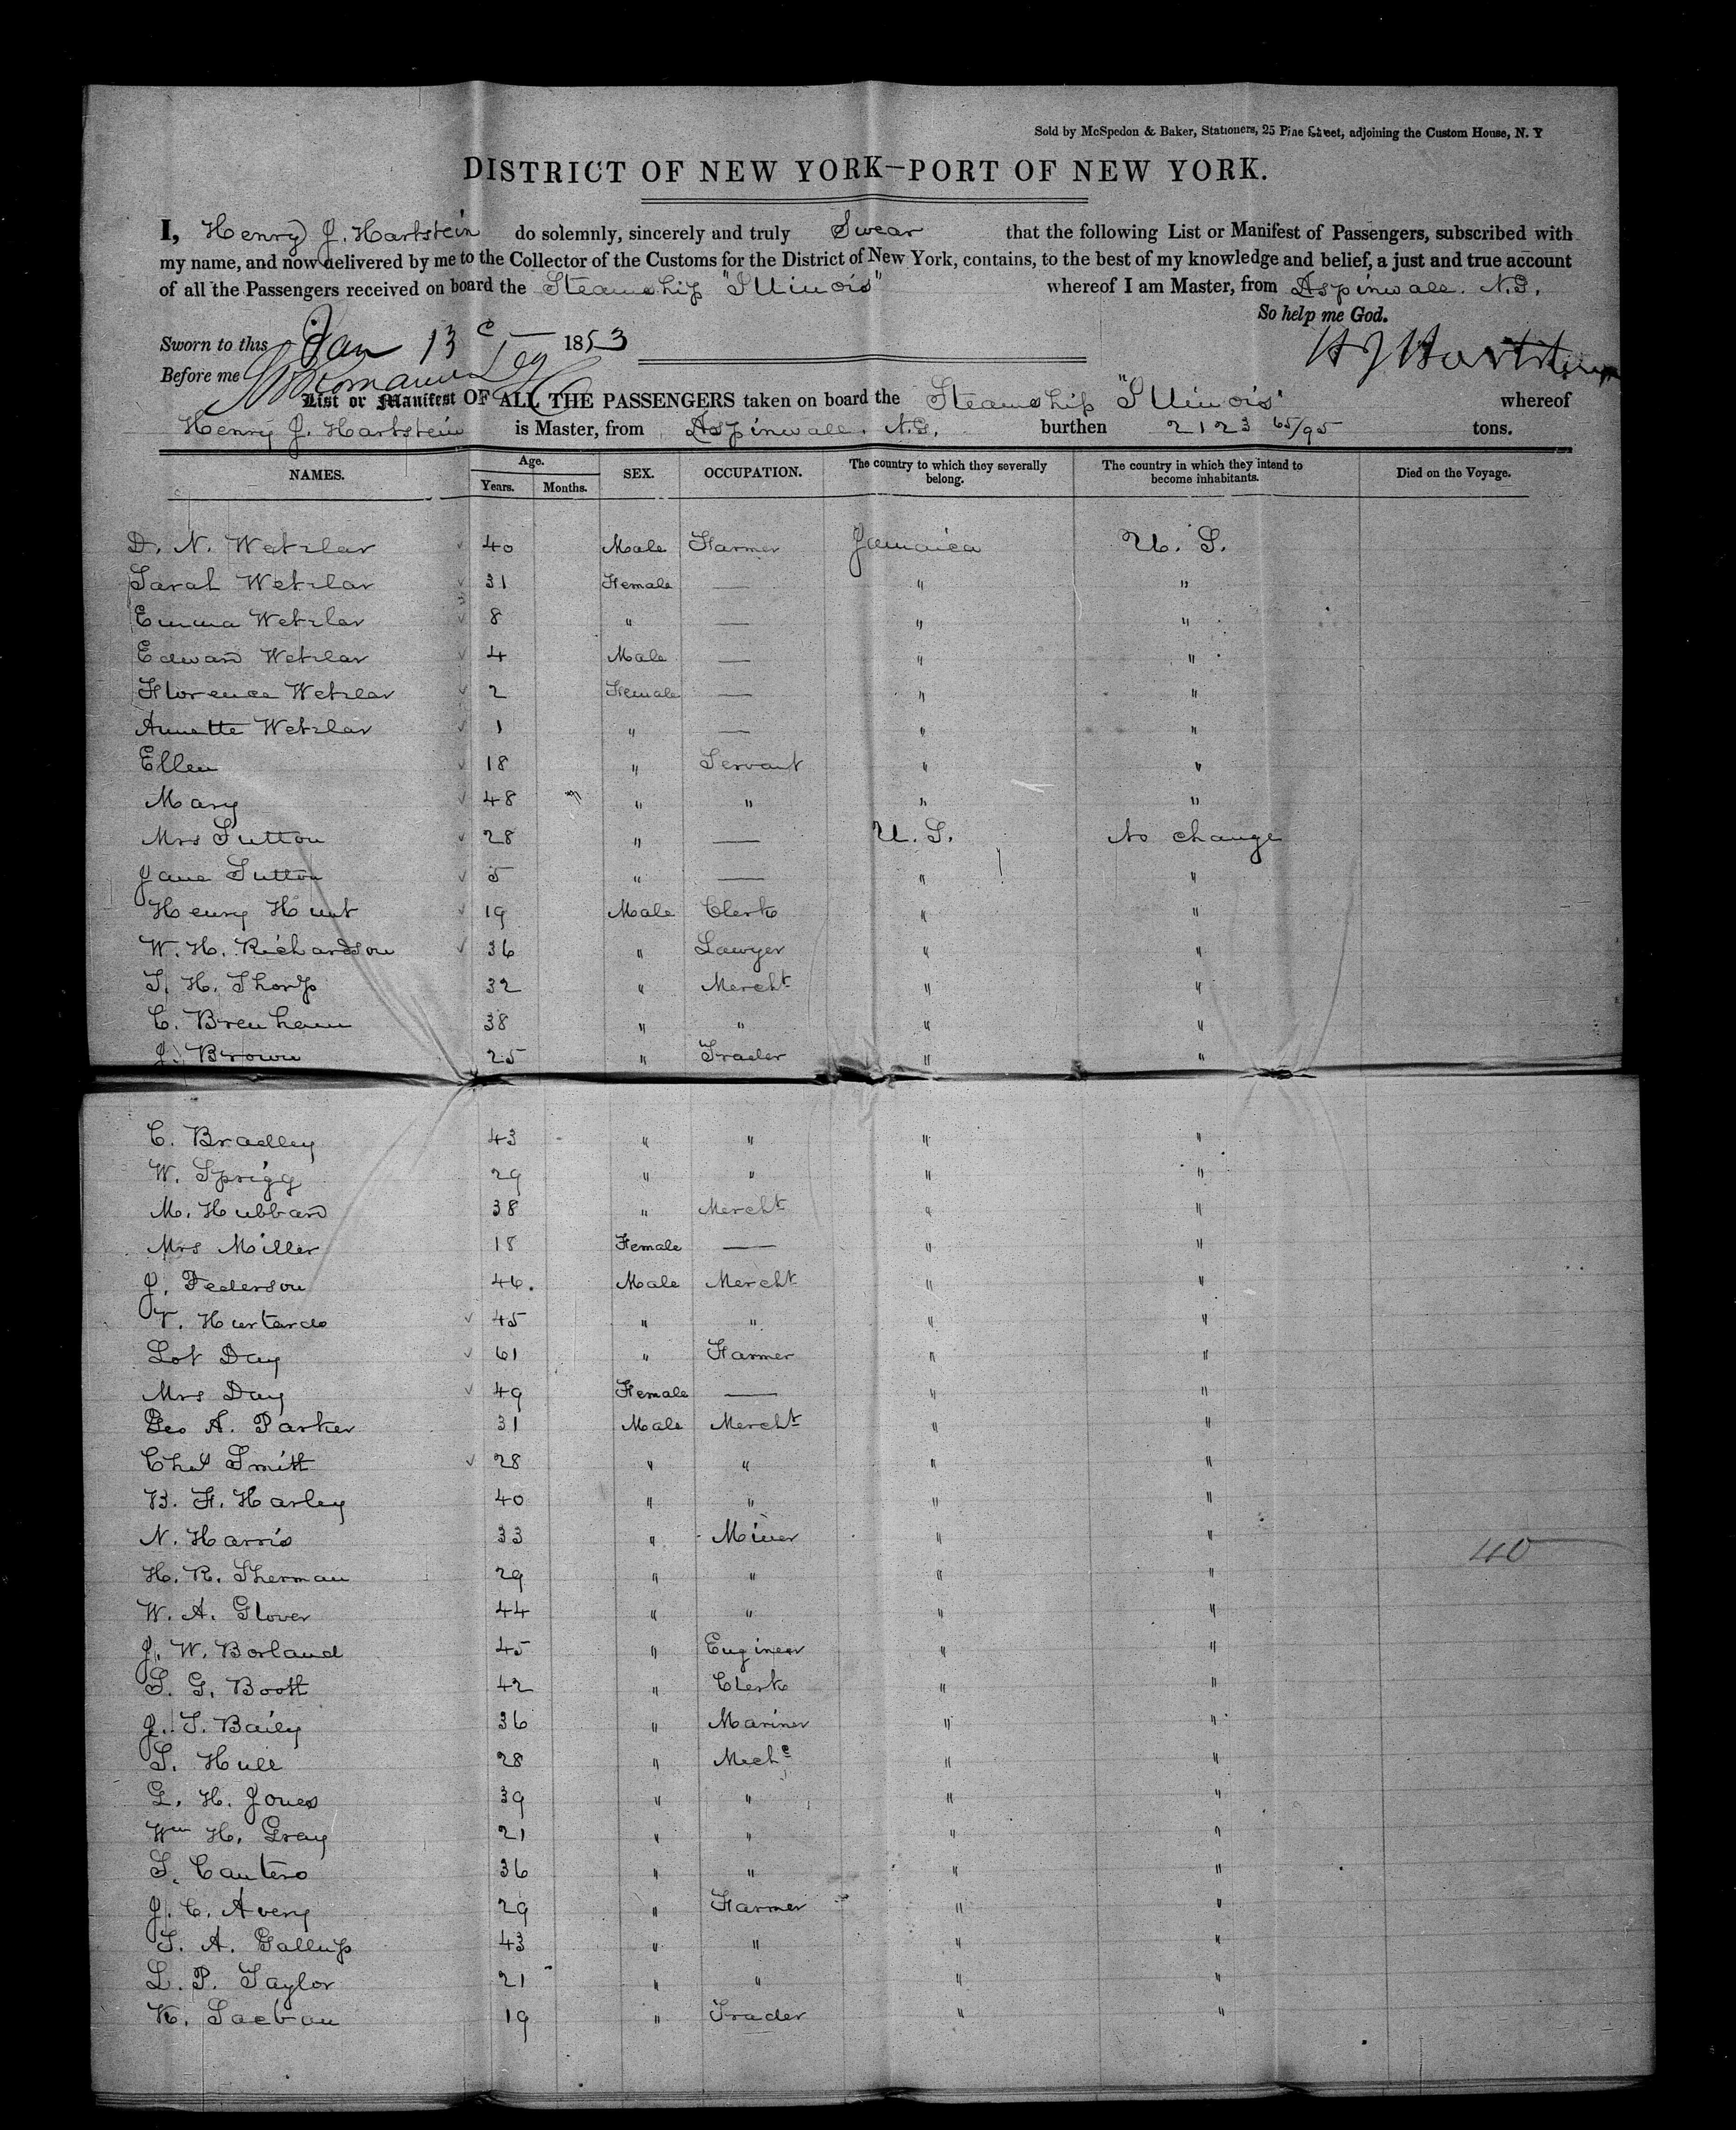 Sold by McSpedon & Baker, Stationers, 25 Pine Street, adjoining the Custom House, N. Y
DISTRICT OF NEW YORK—PORT OF NEW YORK.
I, Henry J. Hartstein do solemnly, sincerely and truly Swear that the following List or Manifest of Passengers, subscribed with
my name, and now delivered by me to the Collector of the Customs for the District of New York, contains, to the best of my knowledge and belief, a just and true account
of all the Passengers received on board the Steamship "Illinois" whereof I am Master, from Aspinwall. N.G.
So help me God.
Sworn to this Jan 13 1853 H J Hartstein
Before me
List or Manifest OF ALL THE PASSENGERS taken on board the Steamship "Illinois" whereof
Henry J. Hartstein is Master, from Aspinwall. N.G. burthen 2123 65/95 tons.
NAMES. Age. Years. Months. SEX. OCCUPATION. The country to which they severally belong. The country in which they intend to become inhabitants. Died on the Voyage.
D. N. Wetzlar 40 Male Farmer Jamaica U. S.
Sarah Wetzlar 31 Female — " "
Emma Wetzlar 8 " — " "
Edward Wetzlar 4 Male — " "
Florence Wetzlar 2 Female — " "
Annette Wetzlar 1 " — " "
Ellen 18 " Servant " "
Mary 48 " " " "
Mrs Sutton 28 " — U. S. No change
Jane Sutton 5 " — " "
Henry Hunt 19 Male Clerk " "
W. H. Richardson 36 " Lawyer " "
T. H. Thorp 32 " Mercht " "
C. Brenham 38 " " " "
J. Brown 25 " Trader " "
C. Bradley 43 " " " "
W. Sprigg 29 " " " "
M. Hubbard 38 " Mercht " "
Mrs Miller 18 Female — " "
J. Federson 46. Male Mercht " "
V. Hurtardo 45 " " " "
Lot Day 61 " Farmer " "
Mrs Day 49 Female — " "
Geo A. Parker 31 Male Mercht " "
Chas Smith 28 " " " "
B. F. Harley 40 " " " "
N. Harris 33 " Miner " "
40
H. R. Sherman 29 " " " "
W. A. Glover 44 " " " "
J. W. Borland 45 " Engineer " "
S. G. Booth 42 " Clerk " "
J. S. Baily 36 " Mariner " "
S. Hull 28 " Mechc " "
G. H. Jones 39 " " " "
Wm H. Gray 21 " " " "
S. Cantero 36 " " " "
J. C. Avery 29 " Farmer " "
S. A. Gallup 43 " " " "
L. P. Taylor 21 " " " "
K. 19 " Trader " "